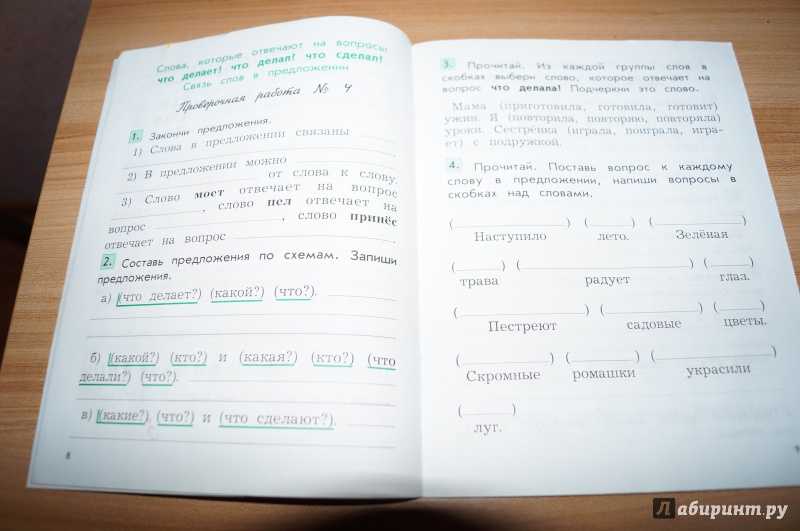 Слова, которые отвечают на вопросы
что делает? что делал? что сделал?
Связь слов в предложении
Проверочная работа № 4
1. Закончи предложения.
1) Слова в предложении связаны
2) В предложении можно
от слова к слову.
3) Слово мост отвечает на вопрос
, слово пел отвечает на
вопрос , слово принёс
отвечает на вопрос .
2. Составь предложения по схемам. Запиши
предложения.
а) (что делает?) (какой?) (что?).
б) (какой?) (кто?) и (какая?) (кто?) (что
делали?) (что?).
в) (какие?) (что?) и (что сделают?).
8
3. Прочитай. Из каждой группы слов в
скобках выбери слово, которое отвечает на
вопрос что делала? Подчеркни это слово.
Мама (приготовила, готовила, готовит)
ужин. Я (повторила, повторяю, повторила)
уроки. Сестрёнка (играла, поиграла, игра-
ет) с подружкой.
4. Прочитай. Поставь вопрос к каждому
слову в предложении, напиши вопросы в
скобках над словами.
( ) ( ) ( )
Наступило лето. Зелёная
( ) ( ) ( )
трава радует глаз.
( ) ( ) ( )
Пестреют садовые цветы.
( ) ( ) ( )
Скромные ромашки украсили
( )
луг.
Лабиринт.ру